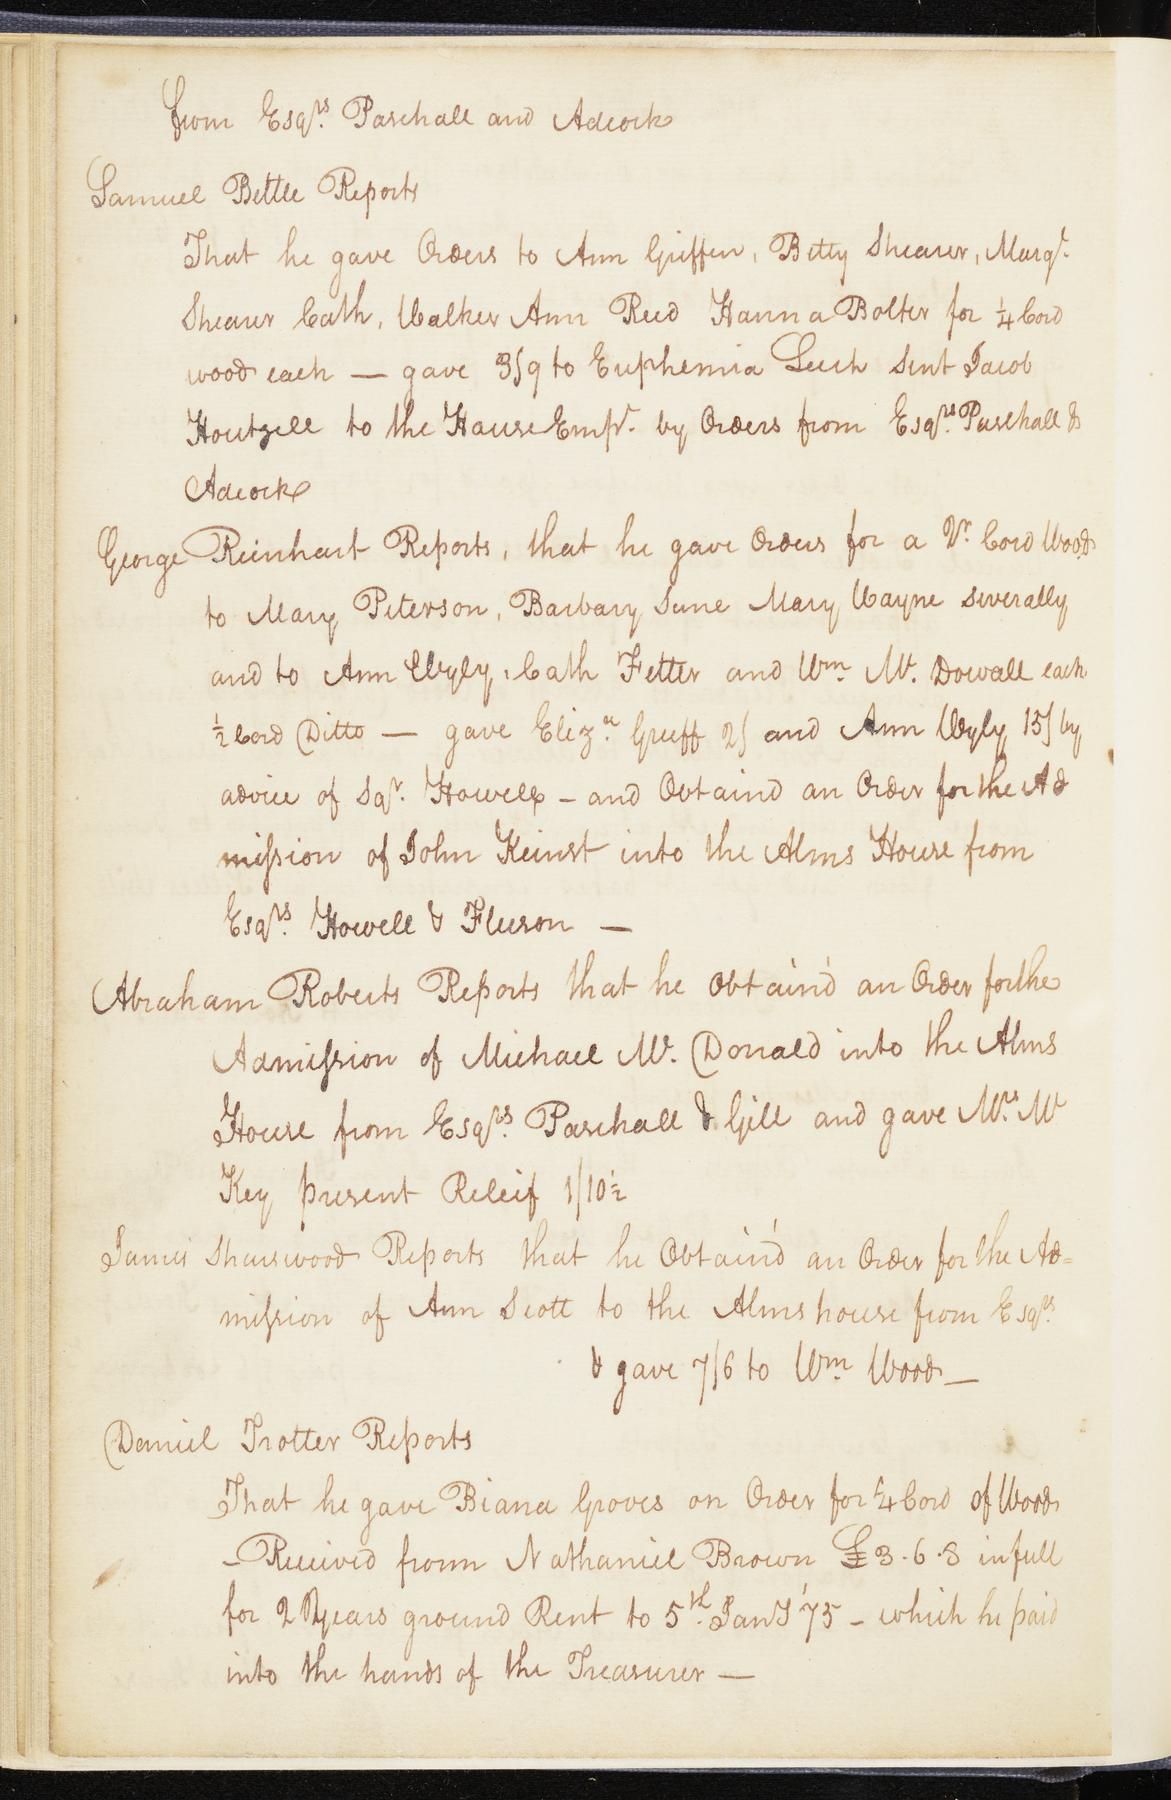 from Esqrs. Paschall and Adcock
Samuel Bettle Reports
That he gave Orders to Ann Griffen, Betty Shearer, Margt.
Shearer Cath, Walker Ann Reed Hanna Bolter for ¼ Cord
wood each — gave 3/9 to Euphemia Leech Sent Jacob
Houtzell to the House Empt. by Orders from Esqrs. Paschall &
Adcock
George Reinhart Reports, that he gave Orders for a Qr. Cord Wood
to Mary Peterson, Barbary Mary Wayne Severally
and to Ann Wyly, Cath Fetter and Wm. Mc. Dowall each
½ Cord Ditto — gave Eliza. Greff 2/ and Ann Wyly 15/ by
advice of Sqr. Howell – and Obtaind an Order for the Ad
mission of John Keinst into the Alms House from
Esqrs. Howell &
Abraham Roberts Reports that he Obtain'd an Order for the
Admission of Michael Mc. Donald into the Alms
House from Esqrs. Paschall & Gill and gave Mrs. Mc
Key present Releif 1/10½
James Sharswood Reports that he Obtain'd an Order for the Ad=
mission of Ann Scott to the Almshouse from Esqrs
& gave 7/6 to Wm. Wood —
Daniel Trotter Reports
That he gave Biana Groves an Order for ¼ Cord of Wood
– Received from Nathaniel Brown £3.6.8 in full
for 2 Years ground Rent to 5th. Jany '75 – which he paid
into the hands of the Treasurer —